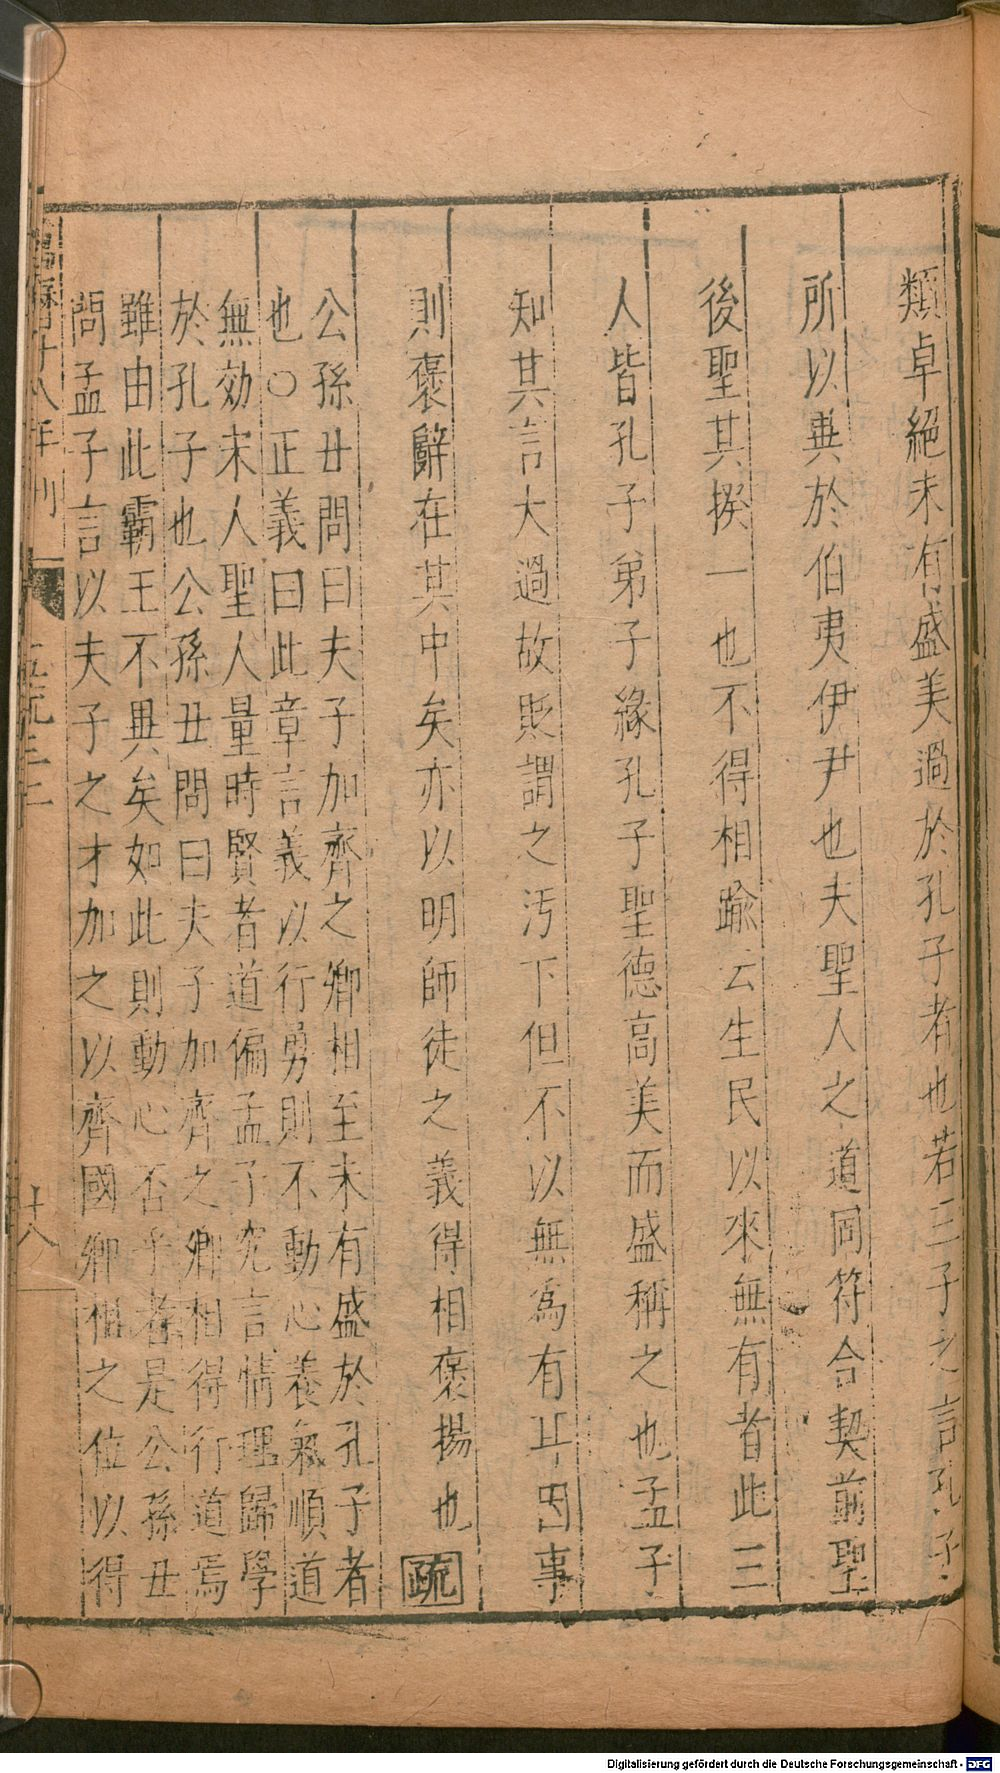 類卓絕未有盛美過於孔子者也若三子之言孔子
所以異於伯夷伊尹也夫聖人之道同符合契前聖
後聖其揆一也不得相踰云生民以來無有者此三
人皆孔子弟子緣孔子聖德高美而盛稱之也孟子
知其言大過故貶謂之汚下但不以無為有耳因事
則褒辭在其中矣亦以明師徒之義得相褒揚也 疏
公孫丑問曰夫子加齊之卿相至未有盛於孔子者
也○正義曰此章言義以行勇則不動心養氣順道
無効宋人聖人量時賢者道偏孟子究言情理歸學
於孔子也公孫丑問曰夫子加齊之卿相得行道焉
雖由此霸王不異矣如此則動心否乎者是公孫丑
問孟子言以夫子之才加之以齊國卿相之位以得
十八年刊
疏三上
廿八
Digitalisierung gefördert durch die Deutsche Forschungsgemeinschaft - DFG